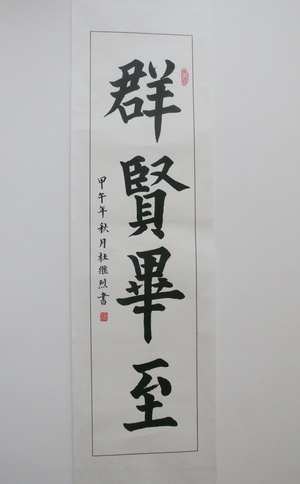 群賢畢至
甲午年秋月杜維烈書